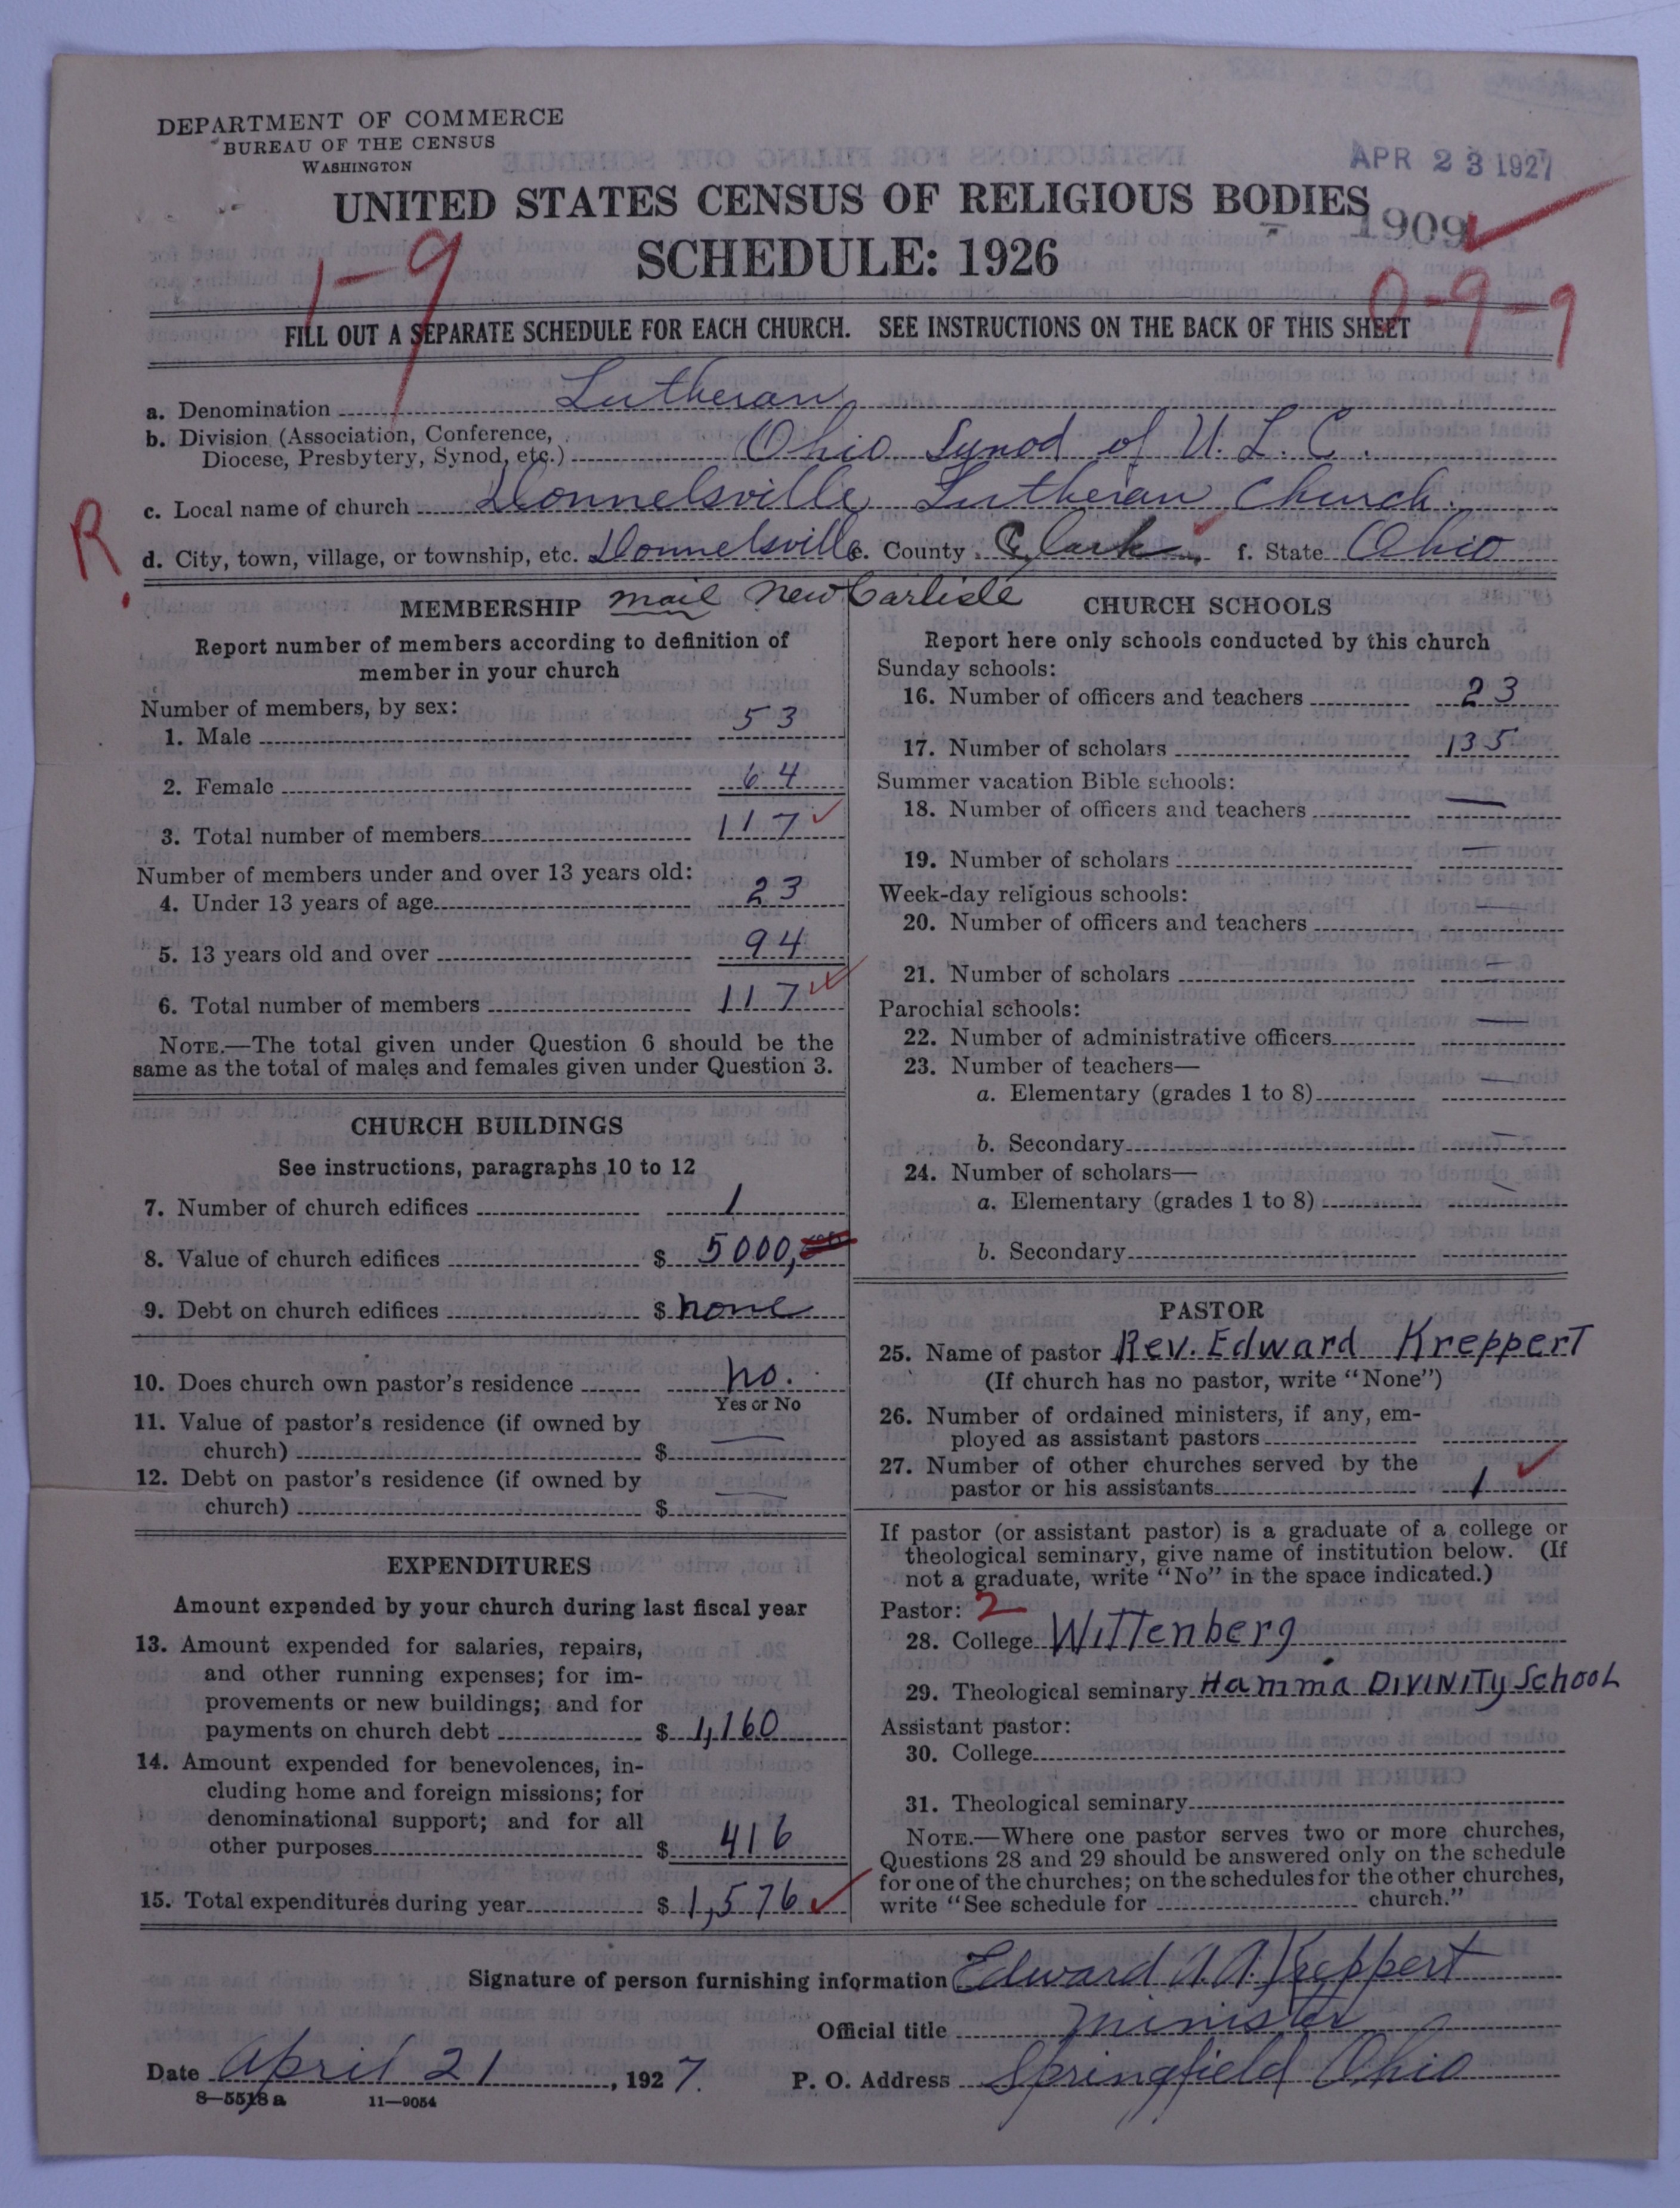 DEPARTMENT OF COMMERCE
BUREAU OF THE CENSUS
WASHINGTON
APR 23 1927
UNITED STATES CENSUS OF RELIGIOUS BODIES
1909
SCHEDULE: 1926
1-9
0-9-9
FILL OUT A SEPARATE SCHEDULE FOR EACH CHURCH. SEE INSTRUCTIONS ON THE BACK OF THIS SHEET
a. Denomination Lutheran
b. Division (Association, Conference,
Diocese, Presbytery, Synod, etc.) Ohio Synod of U. L. C.
c. Local name of church Donnelsville Lutheran Church.
R.
d. City, town, village, or township, etc. Donnelsville e. County Clark f. State Ohio
mail New Carlisle
MEMBERSHIP
Report number of members according to definition of
member in your church
Number of members, by sex:
1. Male 53
2. Female 64
3. Total number of members 117
Number of members under and over 13 years old:
4. Under 13 years of age 23
5. 13 years old and over 94
6. Total number of members 117
NOTE.—The total given under Question 6 should be the
same as the total of males and females given under Question 3.
CHURCH BUILDINGS
See instructions, paragraphs 10 to 12
7. Number of church edifices 1
8. Value of church edifices $ 5000,
9. Debt on church edifices $ none
10. Does church own pastor's residence no.
Yes or No
11. Value of pastor's residence (if owned by
church) $ —
12. Debt on pastor's residence (if owned by
church) $ —
EXPENDITURES
Amount expended by your church during last fiscal year
13. Amount expended for salaries, repairs,
and other running expenses; for im-
provements or new buildings; and for
payments on church debt $ 1,160
14. Amount expended for benevolences, in-
cluding home and foreign missions; for
denominational support; and for all
other purposes $ 416
15. Total expenditures during year $ 1,576
CHURCH SCHOOLS
Report here only schools conducted by this church
Sunday schools:
16. Number of officers and teachers 23
17. Number of scholars 135
Summer vacation Bible schools:
18. Number of officers and teachers —
19. Number of scholars —
Week-day religious schools:
20. Number of officers and teachers —
21. Number of scholars —
Parochial schools:
22. Number of administrative officers —
23. Number of teachers—
a. Elementary (grades 1 to 8) —
b. Secondary —
24. Number of scholars—
a. Elementary (grades 1 to 8) —
b. Secondary
PASTOR
25. Name of pastor Rev. Edward Kreppert
(If church has no pastor, write "None")
26. Number of ordained ministers, if any, em-
ployed as assistant pastors
27. Number of other churches served by the
pastor or his assistants 1
If pastor (or assistant pastor) is a graduate of a college or
theological seminary, give name of institution below. (If
not a graduate, write "No" in the space indicated.)
Pastor: 2
28. College Wittenberg
29. Theological seminary Hamma DIVINITY School
Assistant pastor:
30. College
31. Theological seminary
NOTE.—Where one pastor serves two or more churches,
Questions 28 and 29 should be answered only on the schedule
for one of the churches; on the schedules for the other churches,
write "See schedule for church."
Signature of person furnishing information Edward A. A. Kreppert
Official title minister
Date April 21, 1927. P. O. Address Springfield Ohio
8—5518 a 11—9054